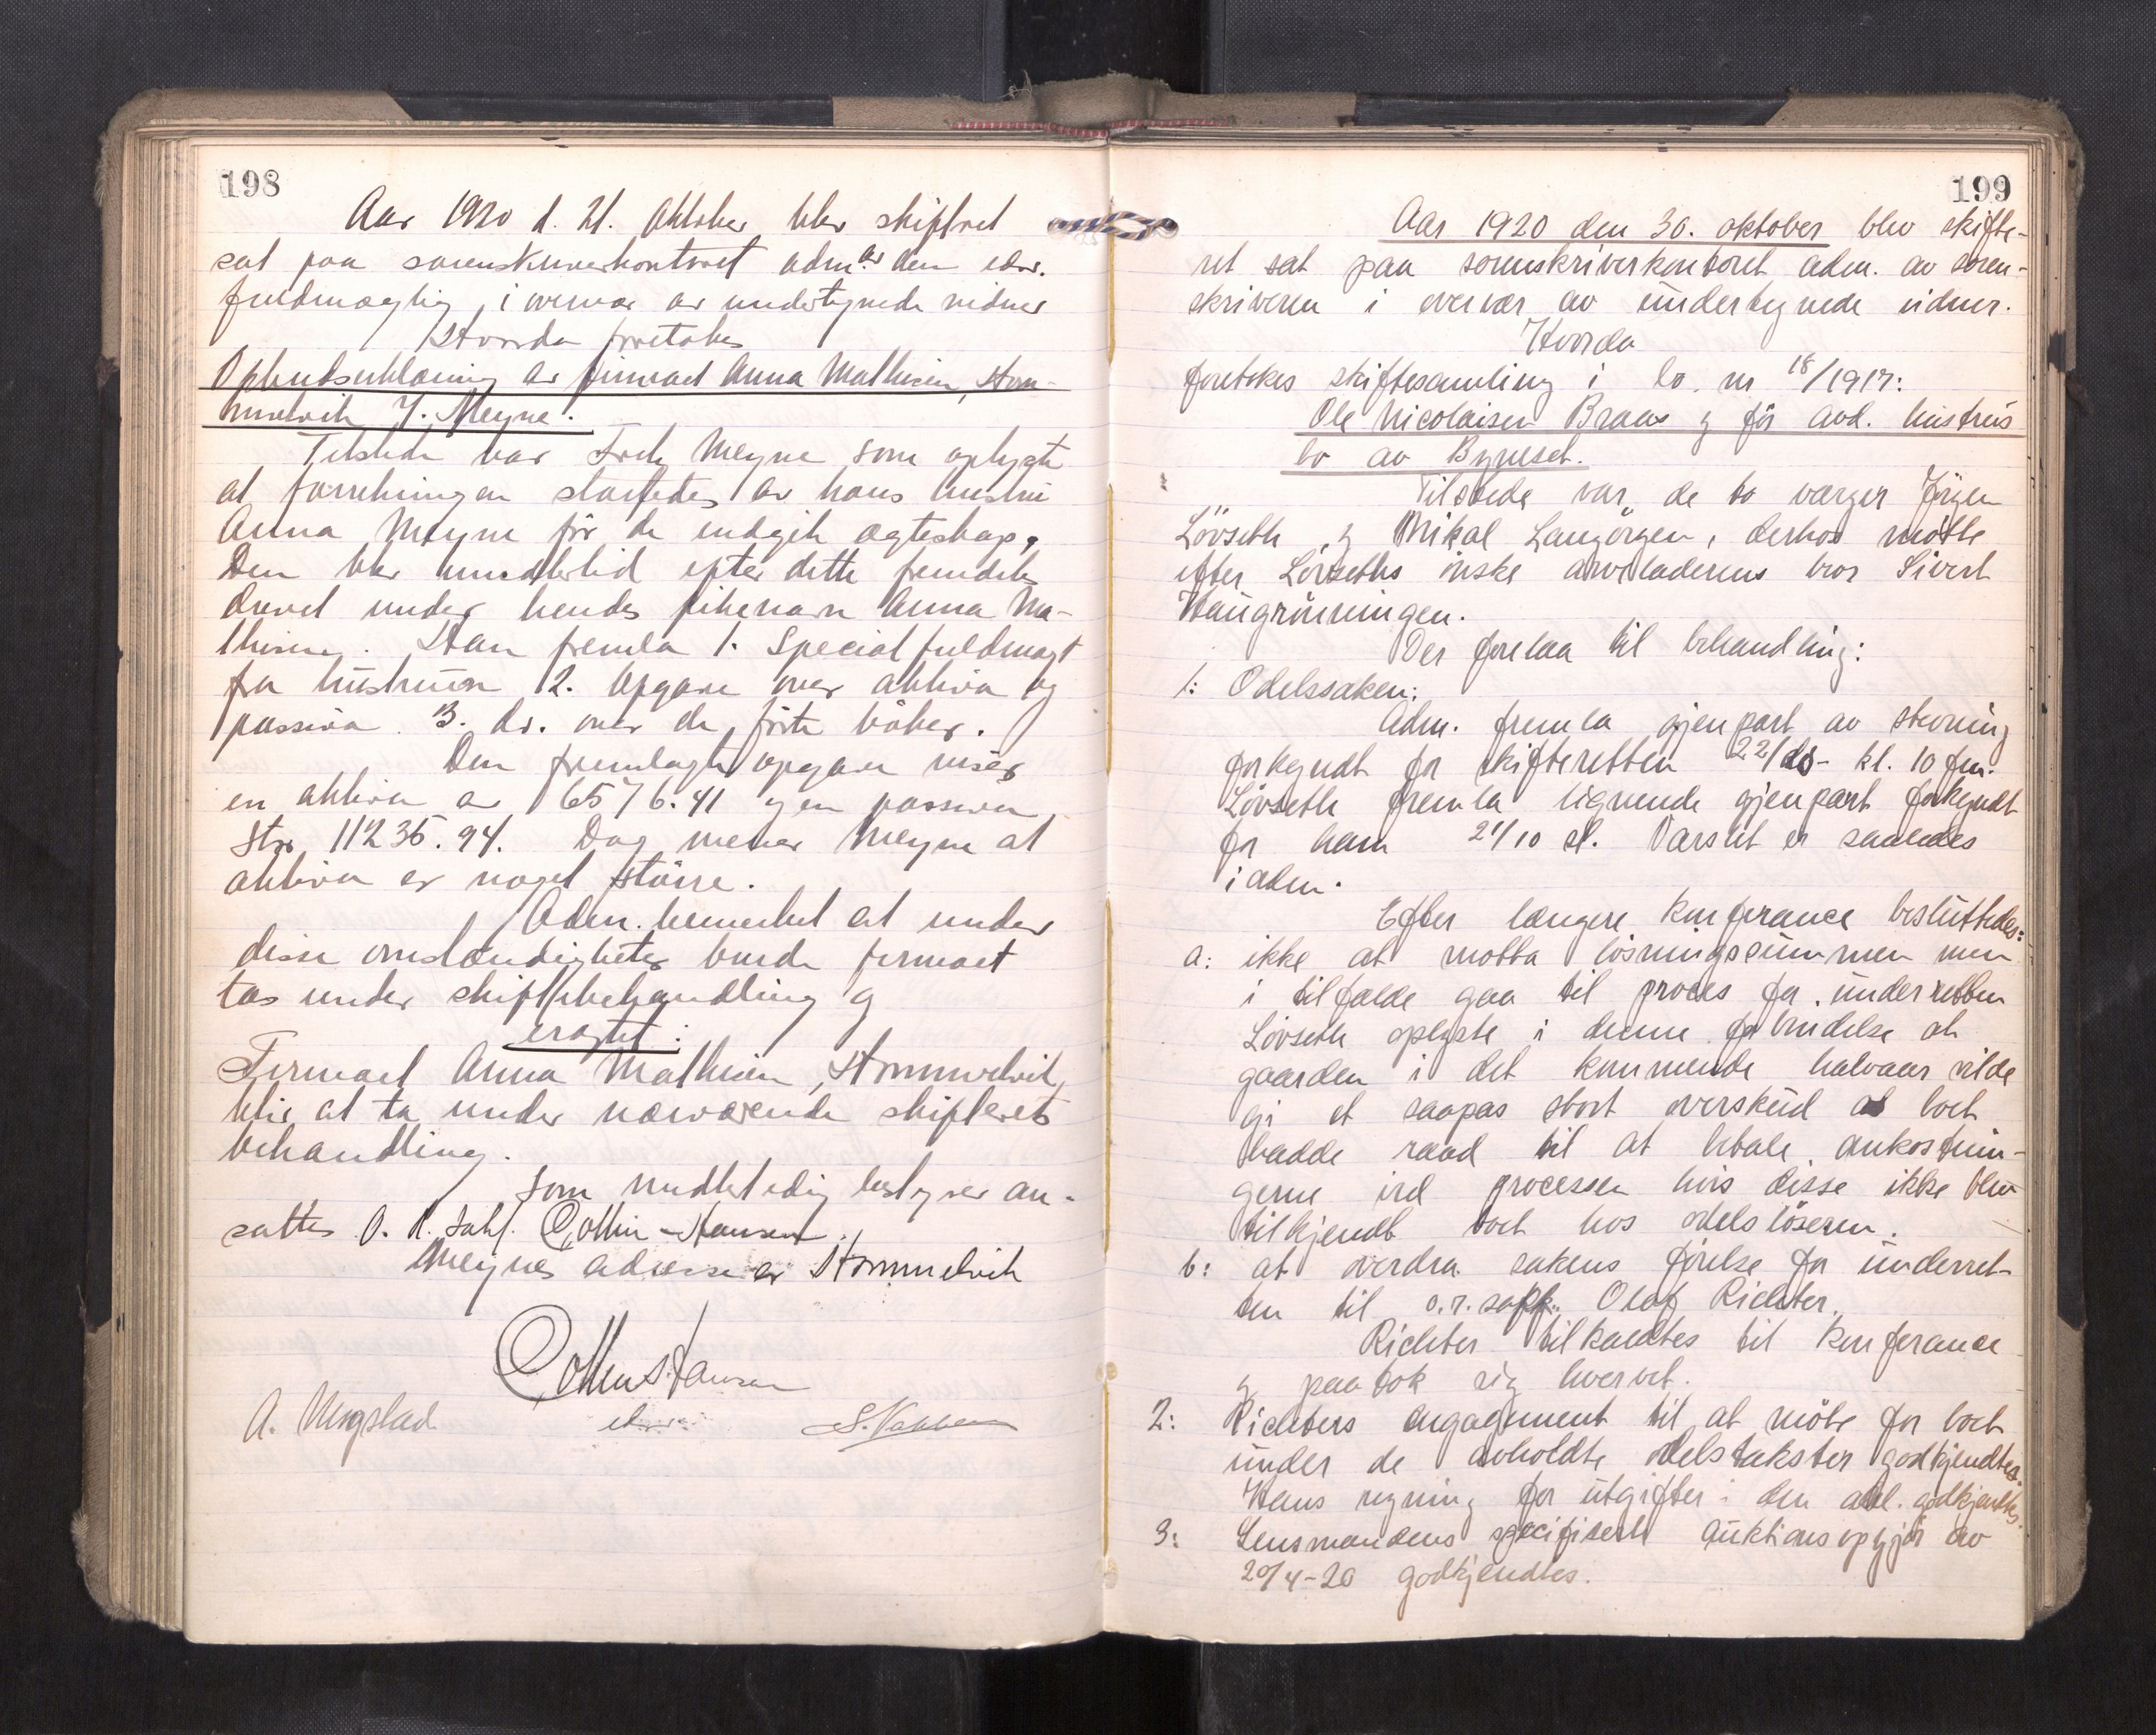 198
Aar 1920 d. 21. Oktober blev skifteret
sat paa sorenskriverkontoret adm. av den edsv.
fuldmægtig, i overvær av undertegnede vidner
Hvorda foretokes
Opbudserklæring av firmaet Anna Mathisen, Hom-
melvik J. Meyne.
Tilstede var Meyne som oplyste
at forretningen startedes av hans hustru
Anna Meyne før de indgik egteskap,
Den blev imidlertid efter dette fremdeles
drevet under hendes pikenavn Anna Ma-
thisen. Han fremla 1. Specialfuldmagt
fra hustruen 2. Opgave over aktiva og
passiva. 3. do. over de førte bøker.
Den fremlagte opgave viser
en aktiva av 6576.41 og en passiva
stor 11236.94. Dog mener Meyne at
aktiva er noget større.
Adm. bemerket at under
disse omstændigheter burde firmaet
tas under skiftebehandling og
eragtet:
Firmaet Anna Mathisen, Hommelvik,
blir at ta under nærværende skifterets
behandling.
Som midlertidig bestyrer an-
sattes O. R. sakf. Collin-Hansen.
Meynes adresse er Hommelvik
Collin Hansen
A. Ungstad
edsv.
199
Aar 1920 den 30. oktober blev skifte-
ret sat paa sorenskriverkontoret adm. av soren-
skriveren i overvær av undertegnede vidner.
Hvorda
foretokes skiftesamling i bo nr 18/1917:
Ole Nicolaisen Braas og før avd. hustrus
bo av Bynesset.
Tilstede var de to værger Jørgen
Lövseth og Mikal Langörgen, derhos møtte
efter Lövseths ønske arveladerens bror Sivert
Haugrönningen.
Der forelaa til behandling:
1: Odelssaken:
Adm. fremla gjenpart av stevning
forkyndt for skifteretten 22/ds- kl. 10 fm.
Lövseth fremla lignende gjenpart forkyndt
for ham 21/10 sl. Varslet er saaledes
i aden.
Efter længere konferance besluttedes:
a: ikke at motta løsningssummen men
i tilfælde gaa til proces for underretten
Lövseth oplyste i denne forbindelse at
gaarden i det kommende halvaar vilde
gi et saapas stort overskud at boet
hadde raad til at betale omkostnin-
gerne ved processen hvis disse ikke blev
tilkjendt boet hos odelsløseren.
b: at overdra sakens førelse for underret-
ten til o.r.sakf. Olaf Richter.
Richter tilkaldtes til konferance
og paatok sig hvervet.
2: Richters engagement til at møte for boet
under de avholdte odelstakster godkjendtes.
Hans regning for utgifter i den anl. godkjendtes.
3: Lensmandens specifiserte auktionsopgjør av
20/4-20 godkjendtes.